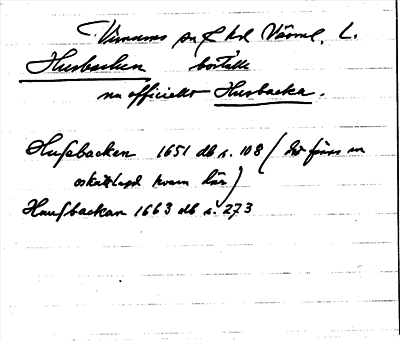 Visnums sn f hd Värml. L.
Husbacken boställe
nu officiellt Husbacka.
Hußebacken 1651 db s. 108 (där finns en
oskattlagd kvarn här)
Hußbackan 1663 db s. 273